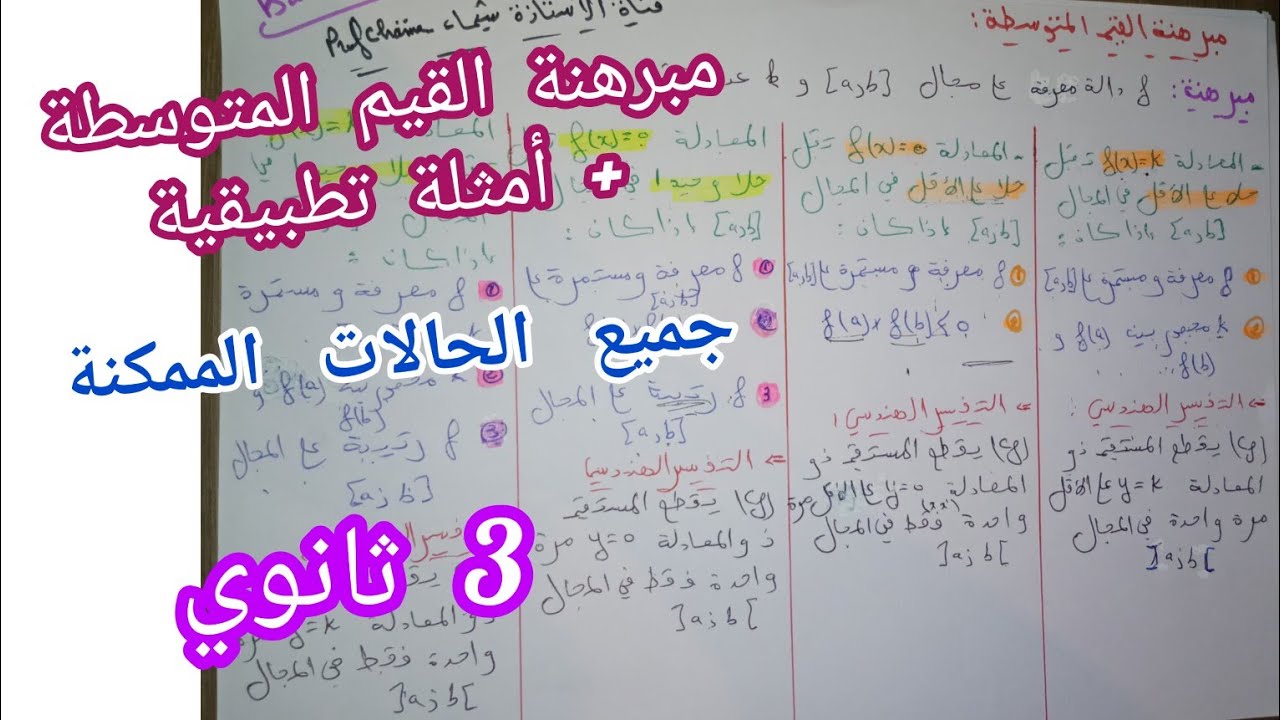 قناة الاستاذة شيماء
Prof chaima
مبرهنة القيم المتوسطة:
مبرهنة: f دالة معرفة ع مجال [a;b] و k
مبرهنة القيم المتوسطة
+ أمثلة تطبيقية
جميع الحالات الممكنة
3 ثانوي
- المعادلة f(x)=k تقبل
حلا ع الأقل في المجال
[a;b] إذا كان :
1 f معرفة و مستمرة ع [a;b]
2 k محصور بين f(a) و
f(b)
=> التفسير الهندسي :
(Cf) يقطع المستقيم ذو
المعادلة y=k ع الأقل
مرة واحدة في المجال
]a;b[
- المعادلة f(x)=0 تقبل
حلا ع الأقل في المجال
[a;b] إذا كان :
1 f معرفة و مستمرة ع [a;b]
2 f(a) x f(b) < 0
=> التفسير الهندسي :
(Cf) يقطع المستقيم ذو
المعادلة y=0 ع الأقل مرة
واحدة فقط في المجال
]a;b[
المعادلة f(x)=0
حلا وحيدا في
[a;b] إذا كان :
1 f معرفة ومستمرة ع
[a;b]
2
3 f رتيبة ع المجال
[a;b]
=> التفسير الهندسي
(Cf) يقطع المستقيم
ذو المعادلة y=0 مرة
واحدة فقط في المجال
]a;b[
المعادلة
في
إذا كان :
1 f معرفة و مستمرة
2 k f(a) و
f(b)
3 f رتيبة ع المجال
[a;b]
ذو المعادلة y=k
واحدة فقط في المجال
]a;b[